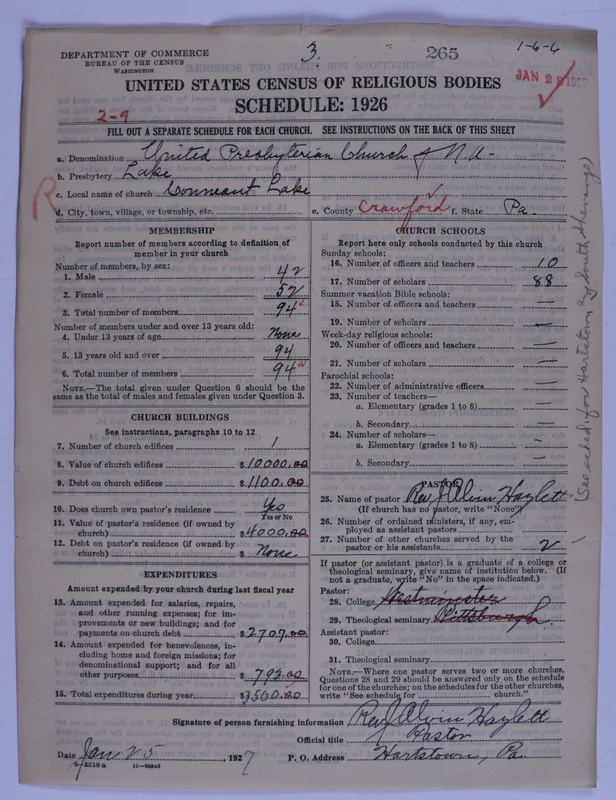 DEPARTMENT OF COMMERCE
BUREAU OF THE CENSUS
WASHINGTON
3.
265
1-6-6
JAN 28
UNITED STATES CENSUS OF RELIGIOUS BODIES
SCHEDULE: 1926
2-9
FILL OUT A SEPARATE SCHEDULE FOR EACH CHURCH. SEE INSTRUCTIONS ON THE BACK OF THIS SHEET
a. Denomination United Presbyterian Church of N.A.
b. Presbytery Lake
c. Local name of church Conneaut Lake
R
d. City, town, village, or township, etc. e. County Crawford f. State Pa.
MEMBERSHIP
Report number of members according to definition of
member in your church
Number of members, by sex:
1. Male 42
2. Female 52
3. Total number of members 94
Number of members under and over 13 years old:
4. Under 13 years of age None
5. 13 years old and over 94
6. Total number of members 94
NOTE.—The total given under Question 6 should be the
same as the total of males and females given under Question 3.
CHURCH BUILDINGS
See instructions, paragraphs 10 to 12
7. Number of church edifices 1
8. Value of church edifices $10000.00
9. Debt on church edifices $1100.00
10. Does church own pastor's residence Yes
Yes or No
11. Value of pastor's residence (if owned by
church) $4000.00
12. Debt on pastor's residence (if owned by
church) $ None
EXPENDITURES
Amount expended by your church during last fiscal year
13. Amount expended for salaries, repairs,
and other running expenses; for im-
provements or new buildings; and for
payments on church debt $2707.00
14. Amount expended for benevolences, in-
cluding home and foreign missions; for
denominational support; and for all
other purposes $793.00
15. Total expenditures during year $3500.00
CHURCH SCHOOLS
Report here only schools conducted by this church
Sunday schools:
16. Number of officers and teachers 10
17. Number of scholars 88
Summer vacation Bible schools:
18. Number of officers and teachers —
19. Number of scholars —
Week-day religious schools:
20. Number of officers and teachers —
21. Number of scholars —
Parochial schools:
22. Number of administrative officers —
23. Number of teachers—
a. Elementary (grades 1 to 8) —
b. Secondary —
24. Number of scholars—
a. Elementary (grades 1 to 8) —
b. Secondary —
PASTOR
25. Name of pastor Rev. J. Alvin Haylett
(If church has no pastor, write "None")
26. Number of ordained ministers, if any, em-
ployed as assistant pastors
27. Number of other churches served by the
pastor or his assistants 2
If pastor (or assistant pastor) is a graduate of a college or
theological seminary, give name of institution below. (If
not a graduate, write "No" in the space indicated.)
Pastor:
28. College Westminster
29. Theological seminary Pittsburgh
Assistant pastor:
30. College
31. Theological seminary
NOTE.—Where one pastor serves two or more churches,
Questions 28 and 29 should be answered only on the schedule
for one of the churches; on the schedules for the other churches,
write "See schedule for church."
See sched for Hartstown
Signature of person furnishing information Rev. J. Alvin Haylett
Official title Pastor
Date Jan 25, 1927 P. O. Address Hartstown, Pa.